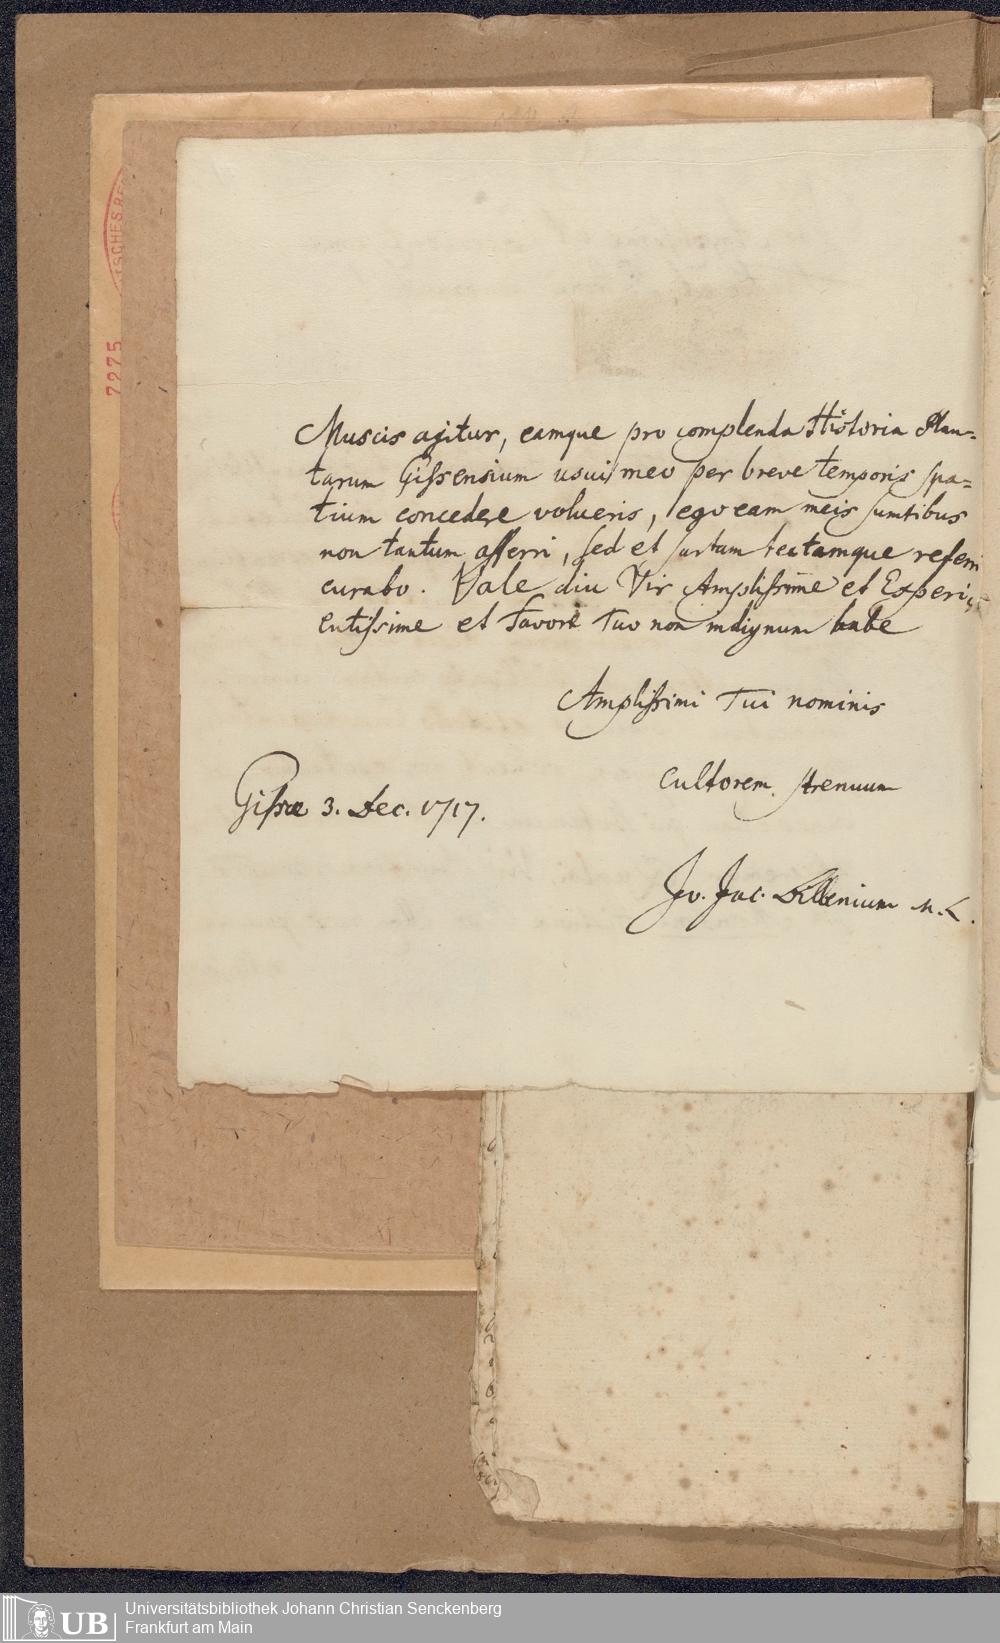 Muscis agitur, eamque pro complenda Historia Plan=
tarum Gissensium usui meo per breve temporis spa=
tium concedere volueris, ego eam meis sumtibus
non tantum afferri, sed et sartam tectamque referri
curabo. Vale diu Vir Amplissime et Experi=
entissime et Favore Tuo non indignum habe
Amplissimi Tui nominis
cultorem strenuum
Gissæ 3. Dec. 1717.
Jo. Jac. Dillenium M.L.
7275
UB
Universitätsbibliothek Johann Christian Senckenberg
Frankfurt am Main